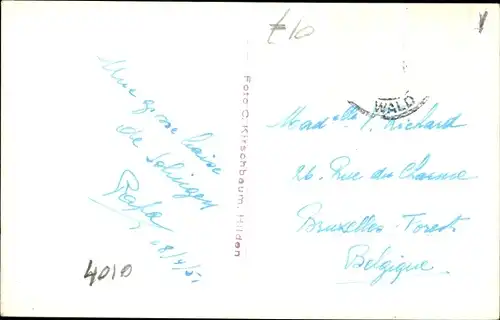 £10
Une grosse baise
de Solingen
Papa
18/4/51
4010
Foto C. Kirschbaum, Hilden
WALD
Mad elle P. Richard
26. Rue du Charme
Bruxelles-Forest
Belgique.